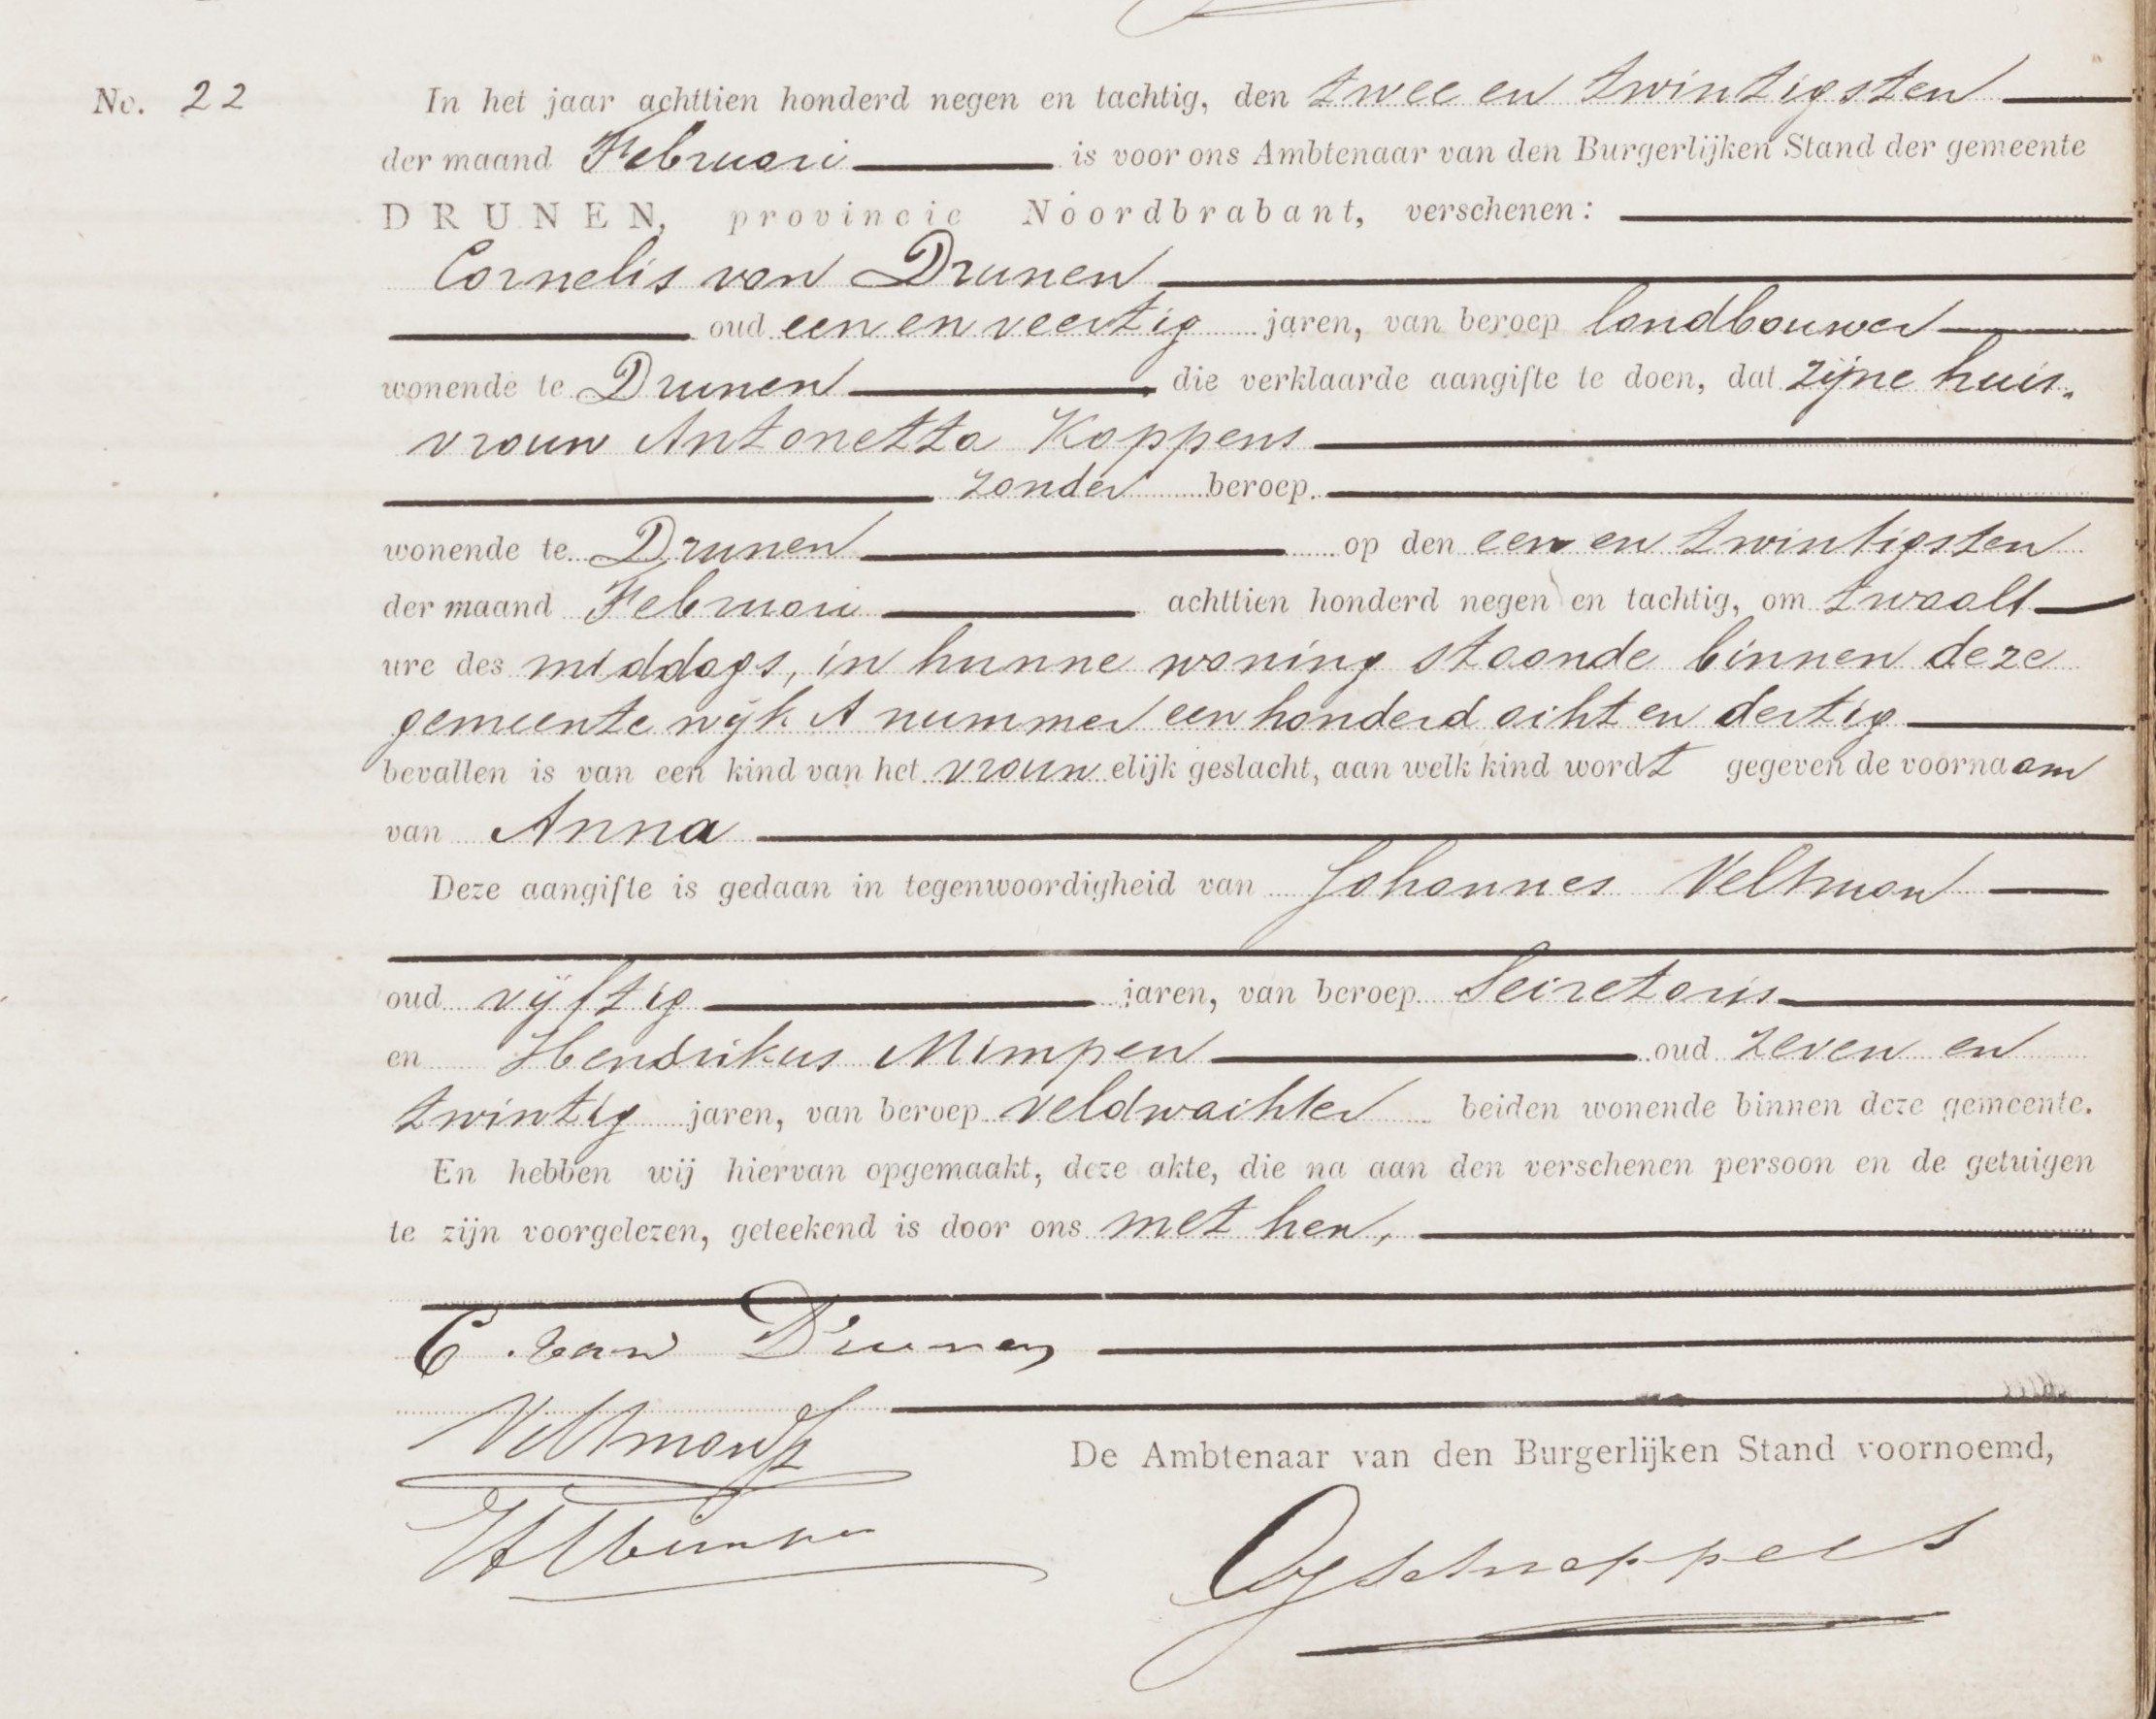 No. 22
In het jaar achttien honderd negen en tachtig, den twee en twintigsten
der maand Februari is voor ons Ambtenaar van den Burgerlijken Stand der gemeente
DRUNEN, provincie Noordbrabant, verschenen:
Cornelis van Drunen
oud een en veertig jaren, van beroep landbouwer
wonende te Drunen die verklaarde aangifte te doen, dat zijne huis-
vrouw Antonetta Koppens
zonder beroep.
wonende te Drunen op den een en twintigsten
der maand Februari achttien honderd negen en tachtig, om twaalf
ure des middags, in hunne woning staande binnen deze
gemeente wijk A nummer een honderd acht en dertig
bevallen is van een kind van het vrouwelijk geslacht, aan welk kind wordt gegeven de voornaam
van Anna
Deze aangifte is gedaan in tegenwoordigheid van Johannes Veltman
oud vijftig jaren, van beroep Secretaris
en Hendrikus Mimpen oud zeven en
twintig jaren, van beroep veldwachter beiden wonende binnen deze gemeente.
En hebben wij hiervan opgemaakt, deze akte, die na aan den verschenen persoon en de getuigen
te zijn voorgelezen, geteekend is door ons met hen,
C van Drunen
Veltman
De Ambtenaar van den Burgerlijken Stand voornoemd,
H Mimpen